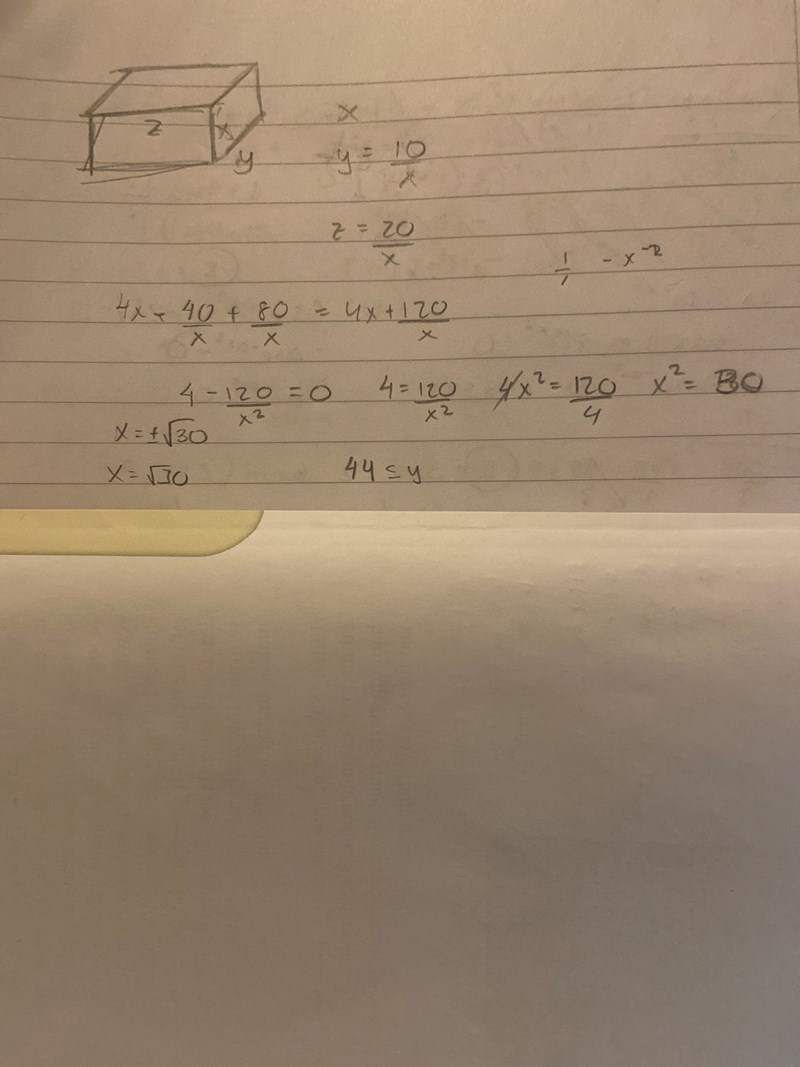 z x y
x
y = 10/x
z = 20/x
1/ - x^-2
4x + 40/x + 80/x = 4x + 120/x
4 - 120/x² = 0 4 = 120/x² 4x² = 120/4 x² = 30
x = ±√30
x = √30 44 ≤ y